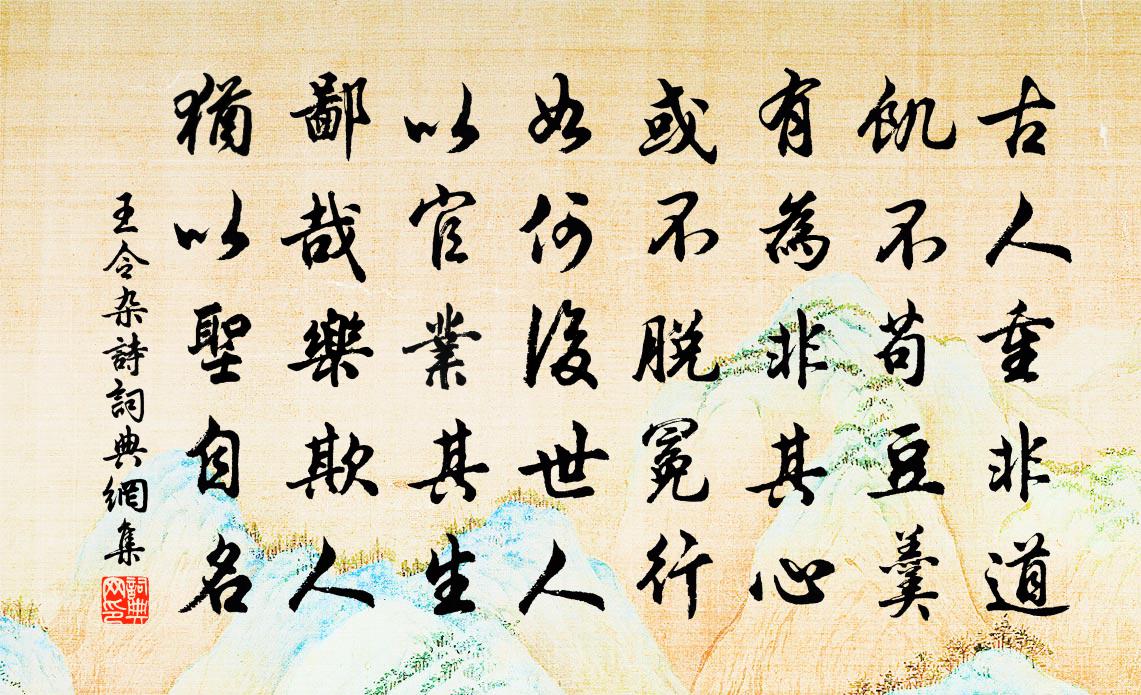 古人重非道
飢不苟豆羹
有為非其心
或不脫冕行
如何後世人
以官業其生
鄙哉樂欺人
猶以聖自名
王令杂詩詞典網集
詞典网印